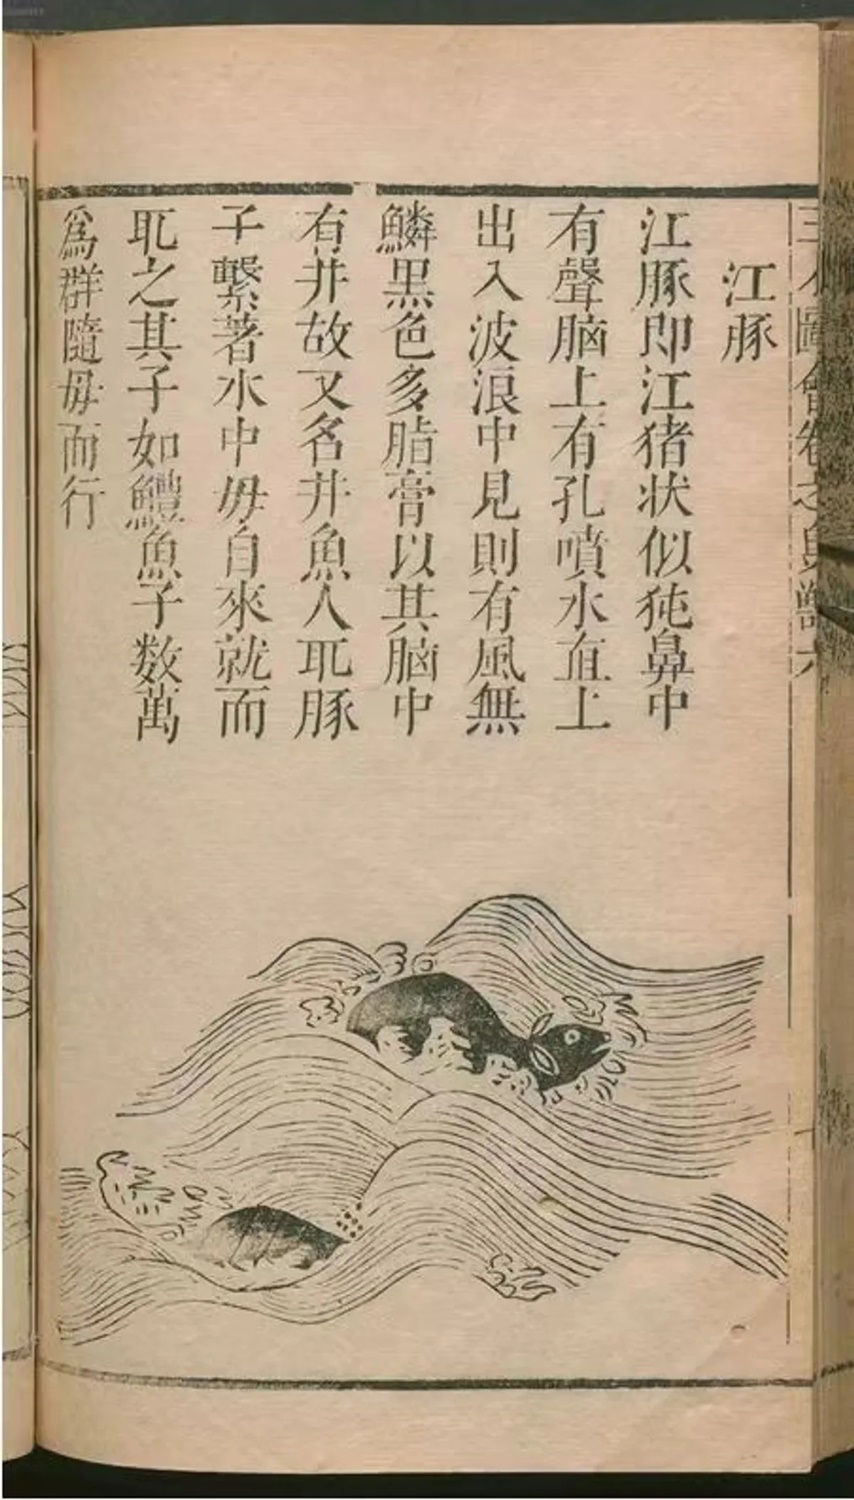 三才圖會卷之鳥獸六
江豚
江豚即江猪状似㹠鼻中
有聲脑上有孔噴水直上
出入波浪中見則有風無
鱗黒色多脂膏以其脑中
有井故又名井魚人取豚
子繫著水中毋自來就而
取之其子如鱧魚子数萬
爲群隨毋而行